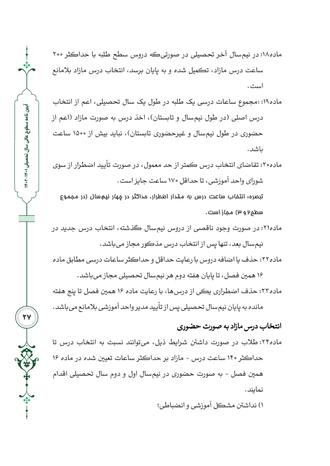 ماده۱۸: در نیم‌سال آخر تحصیلی در صورتی‌که دروس سطح طلبه با حداکثر ۲۰۰
ساعت درس مازاد، تکمیل شده و به پایان برسد، انتخاب درس مازاد بلامانع
است.
ماده۱۹: مجموع ساعات درسی یک طلبه در طول یک سال تحصیلی، اعم از انتخاب
درس اصلی (در طول نیم‌سال و تابستان)، اخذ درس به صورت مازاد (اعم از
حضوری در طول نیم‌سال و غیرحضوری تابستان)، نباید بیش از ۱۵۰۰ ساعت
باشد.
ماده۲۰: تقاضای انتخاب درس کمتر از حد معمول، در صورت تأیید اضطرار از سوی
شورای واحد آموزشی، تا حداقل ۱۷۰ ساعت جایز است.
تبصره: انتخاب ساعت درس به مقدار اضطرار، حداکثر در چهار نیم‌سال (در مجموع
سطح۲ و ۳) مجاز است.
ماده۲۱: در صورت وجود ناقصی از دروس نیم‌سال گذشته، انتخاب درس جدید در
نیم‌سال بعد، تنها پس از انتخاب درس مذکور مجاز می‌باشد.
ماده۲۲: حذف یا اضافه دروس با رعایت حداقل و حداکثر ساعات درسی مطابق ماده
۱۶ همین فصل، تا پایان هفته دوم هر نیم‌سال تحصیلی مجاز می‌باشد.
ماده۲۳: حذف اضطراری یکی از درس‌ها، با رعایت ماده ۱۶ همین فصل تا پنج هفته
مانده به پایان نیم‌سال تحصیلی پس از تأیید مدیر واحد آموزشی بلامانع می‌باشد.
انتخاب درس مازاد به صورت حضوری
ماده۲۴: طلاب در صورت داشتن شرایط ذیل، می‌توانند نسبت به انتخاب درس تا
حداکثر ۱۴۰ ساعت درس - مازاد بر حداکثر ساعات تعیین شده در ماده ۱۶
همین فصل - به صورت حضوری در نیم‌سال اول و دوم سال تحصیلی اقدام
نمایند.
۱) نداشتن مشکل آموزشی و انضباطی؛
۲۷